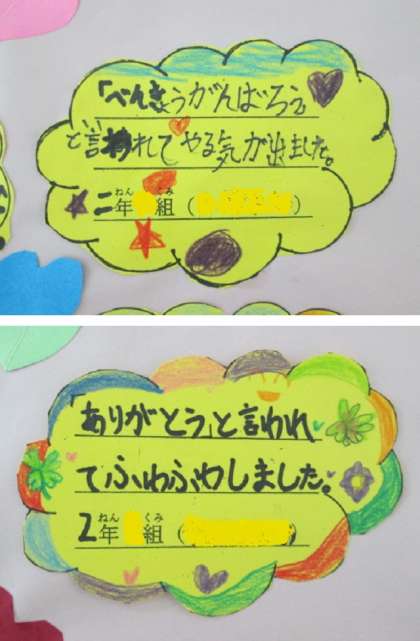 「べんきょうがんばろう」
と言われてやる気が出ました。
二年 組（
「ありがとう」と言われ
てふわふわしました。
2年 組（